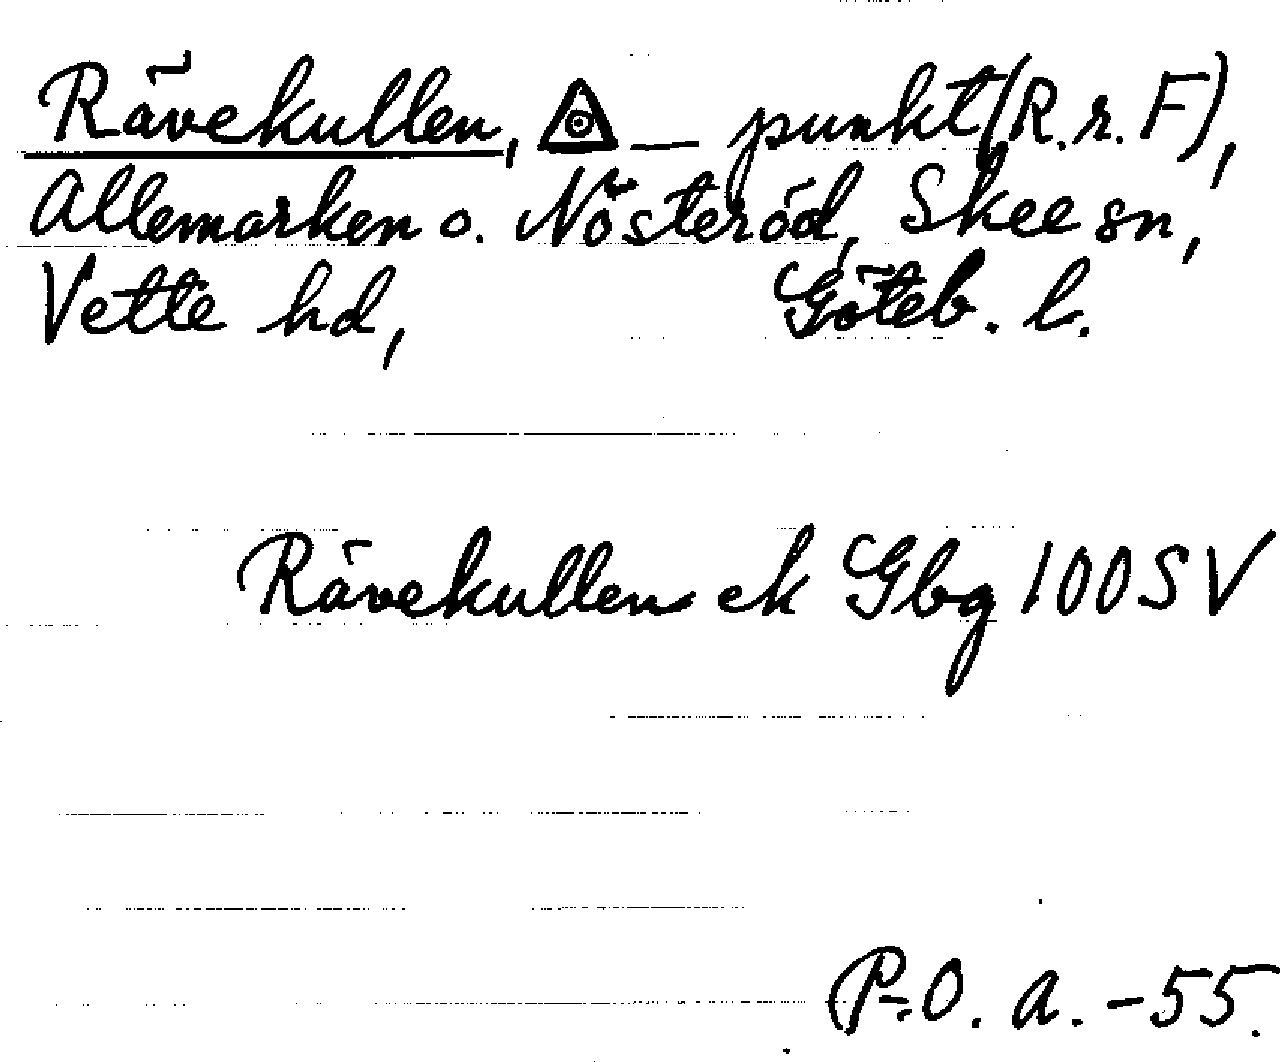 Rävekullen, — punkt (R. r. F),
Allemarken o. Nösteröd, Skee sn,
Vette hd, Göteb. l.
Rävekullen ek Gbg 100 SV
P.-O. a. -55.